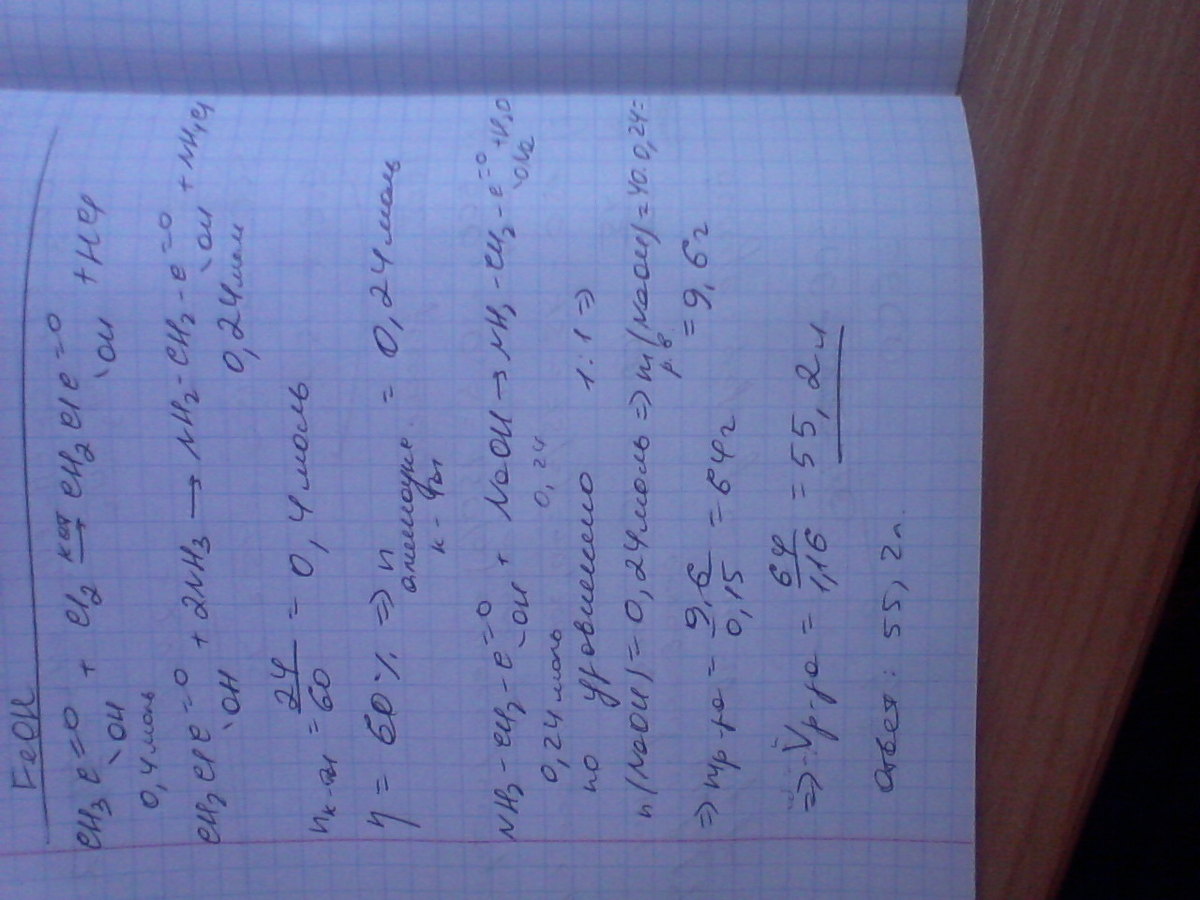 FeOH
CH3C=O + Cl2 кат→ CH2ClC=O + HCl
\OH \OH
0,4 моль
CH2ClC=O + 2NH3 → NH2-CH2-C=O + NH4Cl
\OH \OH
0,24 моль
nк-ты = 24/60 = 0,4 моль
η = 60% => n аминоукс. к-ты = 0,24 моль
NH2-CH2-C=O + NaOH → NH2-CH2-C=O + H2O
\OH \ONa
0,24 моль 0,24
по уровнению 1:1 =>
n(NaOH) = 0,24 моль => m р.в (NaOH) = 40·0,24 =
= 9,6 г
=> mр-ра = 9,6/0,15 = 64 г
=> Vр-ра = 64/1,16 = 55,2 л
Ответ: 55,2 л.